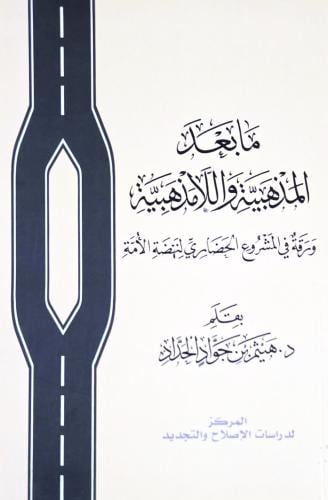 مَا بَعْدَ
المَذْهَبِيَّةِ وَاللَّامَذْهَبِيَّةِ
وَرَقَةٌ فِي المَشْرُوعِ الحَضَارِيِّ لِنَهْضَةِ الأُمَّةِ
بِقَلَمِ
د. هَيْثَم بْن جَوَاد الحَدَّاد
المركز
لدراسات الإصلاح والتجديد